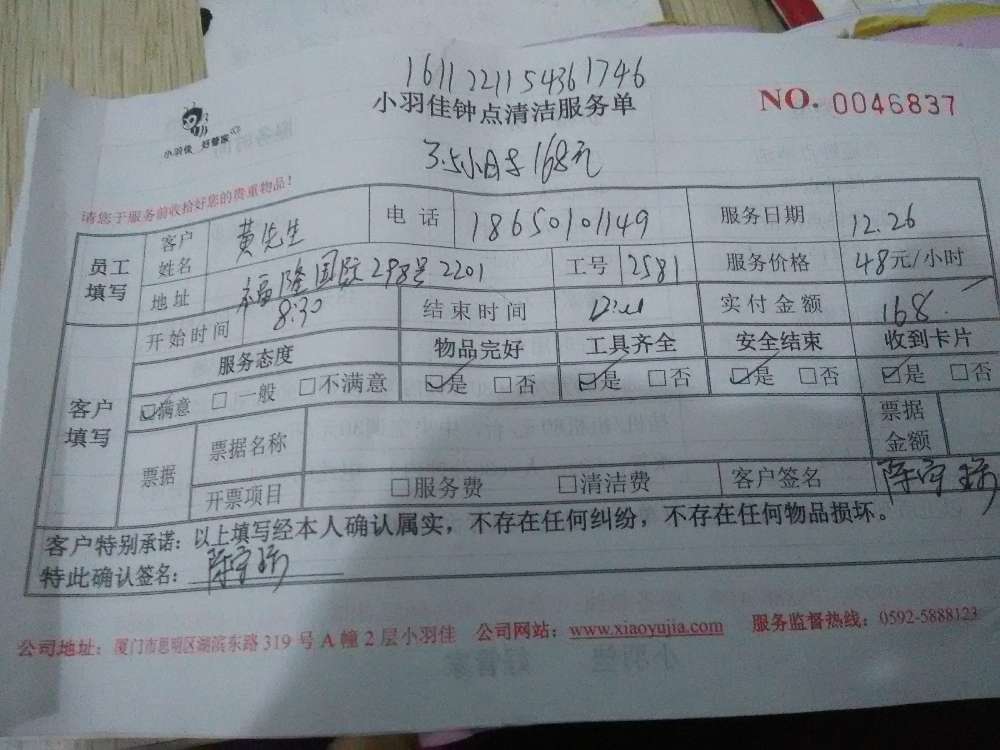 1611221154361746
小羽佳钟点清洁服务单
NO. 0046837
小羽佳 好管家
3.5小时 168元
请您于服务前收拾好您的贵重物品！
员工填写 客户姓名 黄先生 电话 18650101149 服务日期 12.26
地址 福隆国际298号2201 工号 2581 服务价格 48元/小时
开始时间 8:30 结束时间 实付金额 168
客户填写 服务态度 物品完好 工具齐全 安全结束 收到卡片
☑满意 □一般 □不满意 ☑是 □否 ☑是 □否 ☑是 □否 ☑是 □否
票据 票据名称 票据金额
开票项目 □服务费 □清洁费 客户签名
客户特别承诺：以上填写经本人确认属实，不存在任何纠纷，不存在任何物品损坏。
特此确认签名：
公司地址：厦门市思明区湖滨东路319号A幢2层小羽佳 公司网站：www.xiaoyujia.com 服务监督热线：0592-5888123